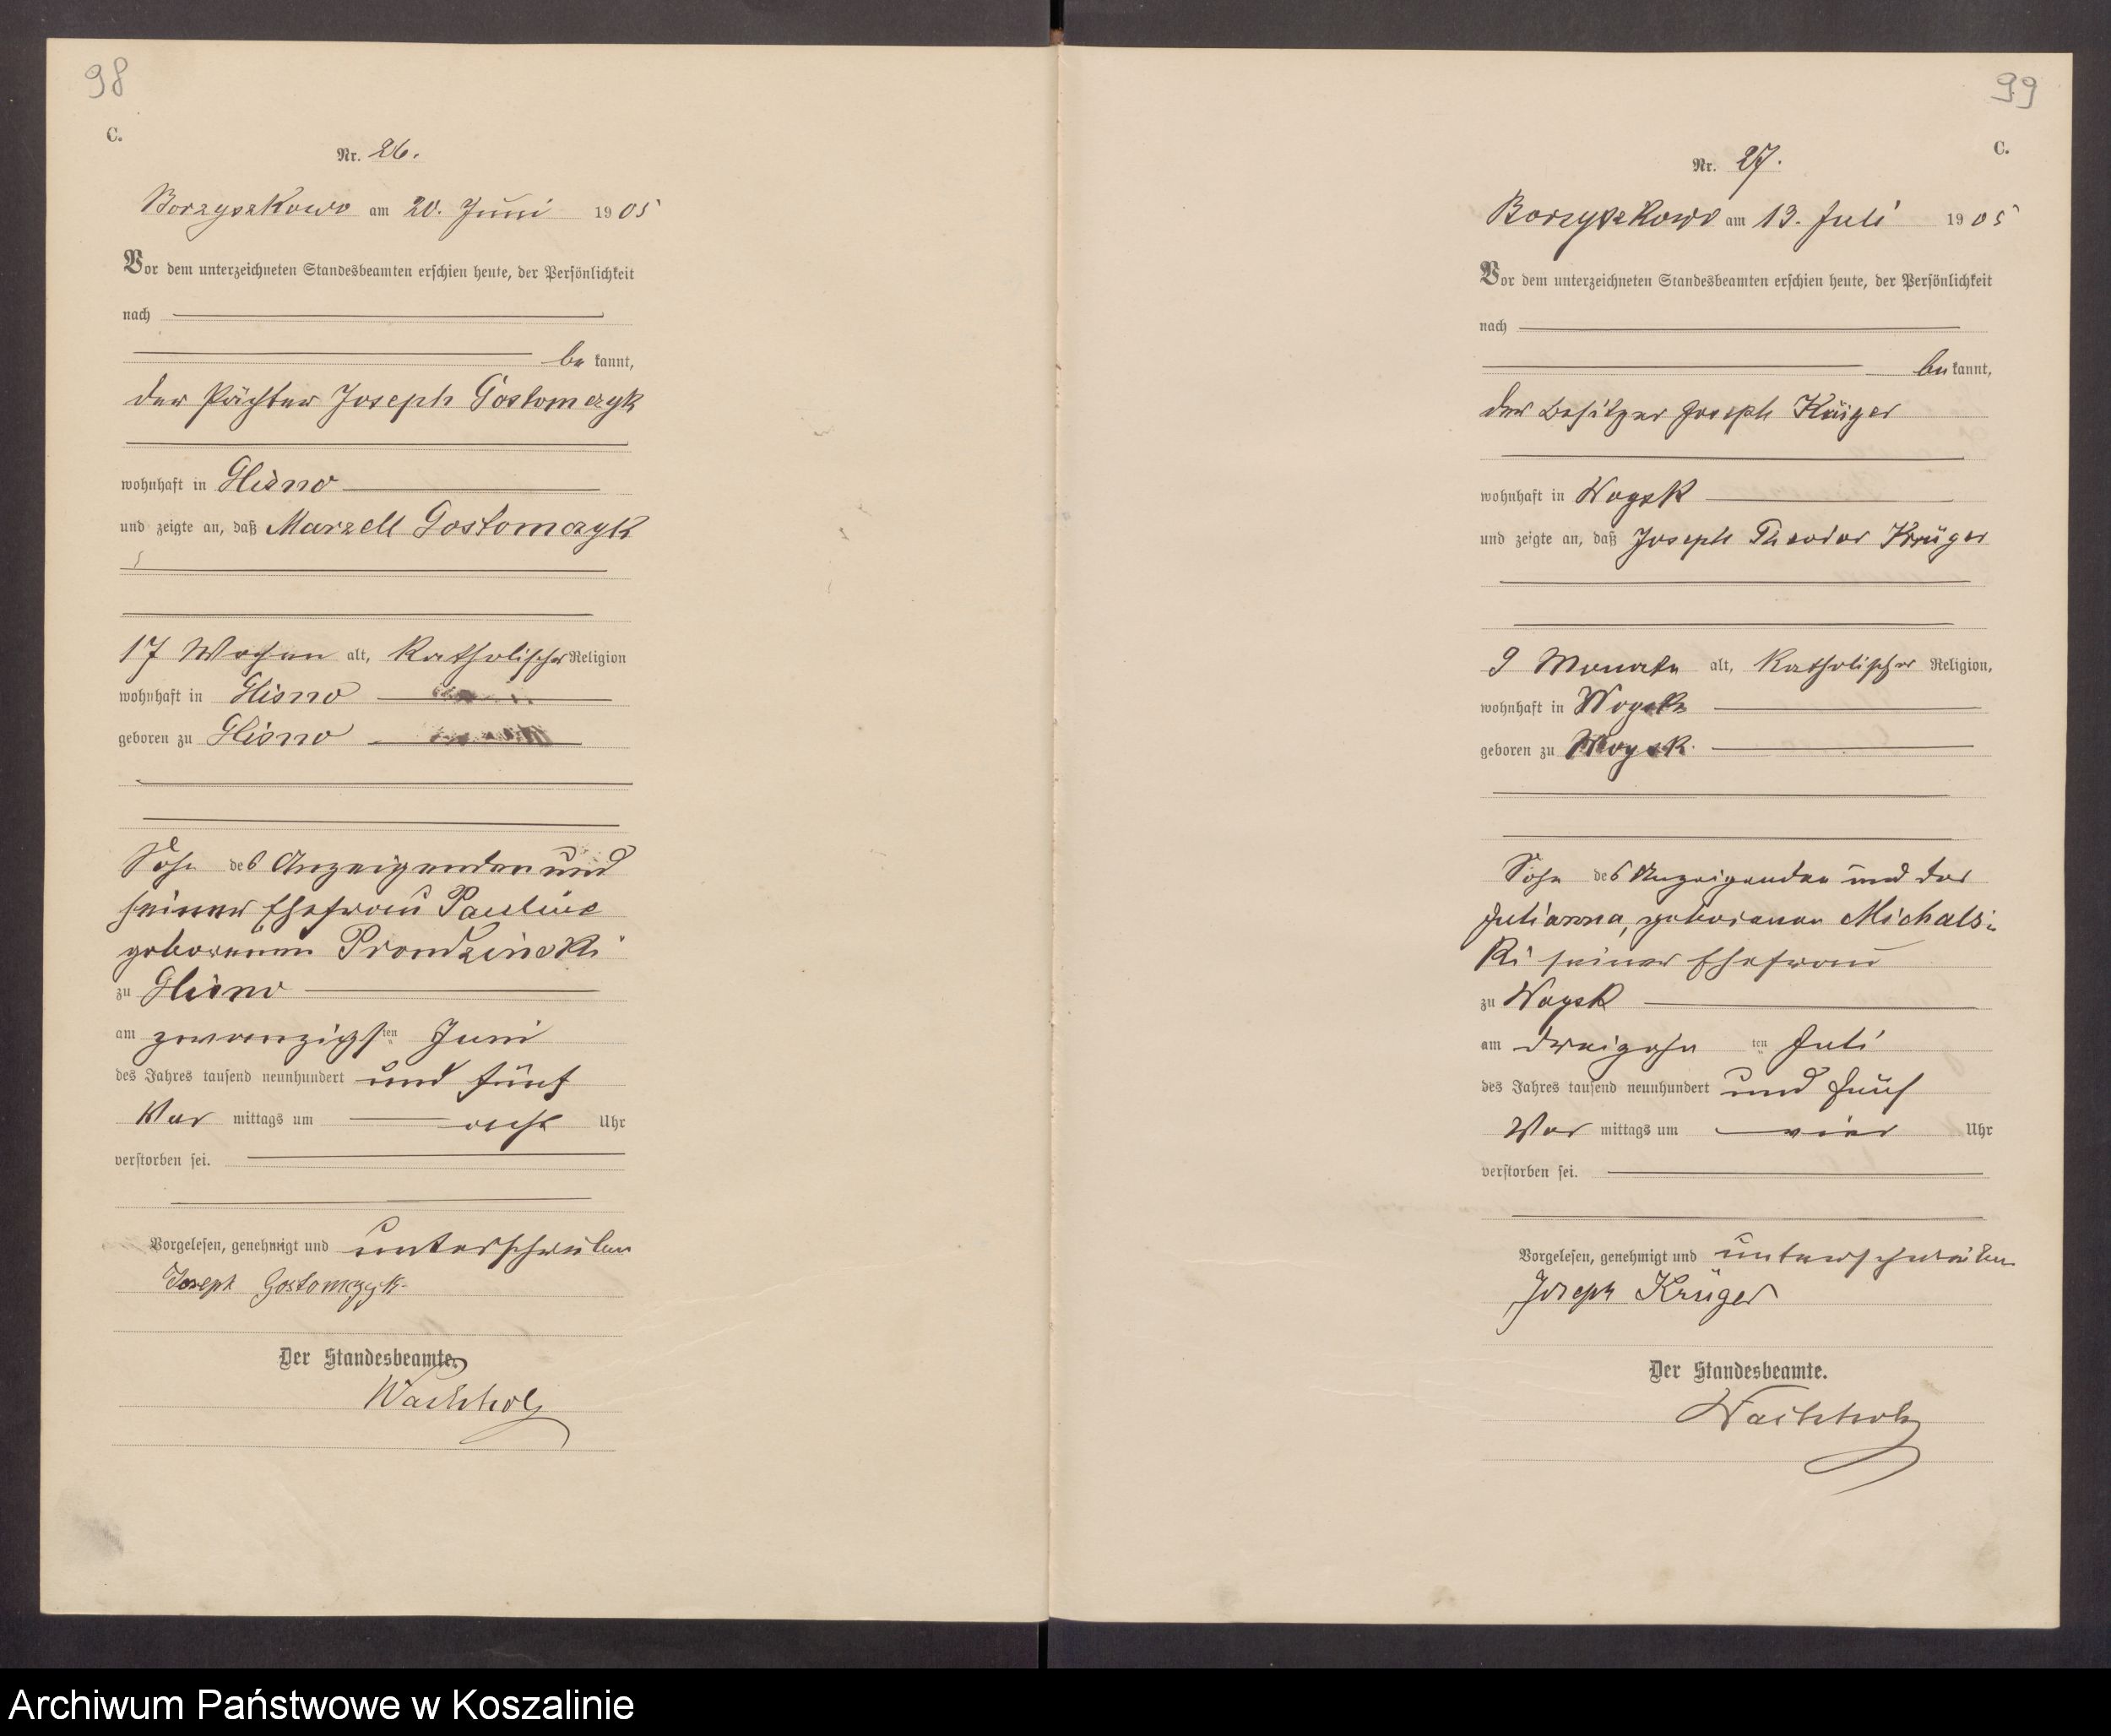 98
C.
Nr. 26.
Borzyszkowo am 20. Juni 1905
Vor dem unterzeichneten Standesbeamten erschien heute, der Persönlichkeit
nach
be kannt,
der Pächter Joseph Gostomczyk
wohnhaft in Glisno
und zeigte an, daß Marzell Gostomczyk
17 Wochen alt, katholischer Religion
wohnhaft in Glisno
geboren zu Glisno
Sohn des Anzeigenden und
seiner Ehefrau Pauline
geborenen Prondzinski
zu Glisno
am zwanzigsten Juni
des Jahres tausend neunhundert und fünf
Vor mittags um acht Uhr
verstorben sei.
Vorgelesen, genehmigt und unterschrieben
Joseph Gostomczyk
Der Standesbeamte.
Wachholz
99
C.
Nr. 27.
Borzyszkowo am 13. Juli 1905
Vor dem unterzeichneten Standesbeamten erschien heute, der Persönlichkeit
nach
be kannt,
der Besitzer Joseph Krüger
wohnhaft in Wogsk
und zeigte an, daß Joseph Theodor Krüger
9 Monate alt, katholischer Religion,
wohnhaft in Wogsk
geboren zu Wogsk
Sohn des Anzeigenden und der
Julianna, geborenen Michals-
ki seiner Ehefrau
zu Wogsk
am dreizehn ten Juli
des Jahres tausend neunhundert und fünf
Vor mittags um vier Uhr
verstorben sei.
Vorgelesen, genehmigt und unterschrieben
Joseph Krüger
Der Standesbeamte.
Wachholz
Archiwum Państwowe w Koszalinie